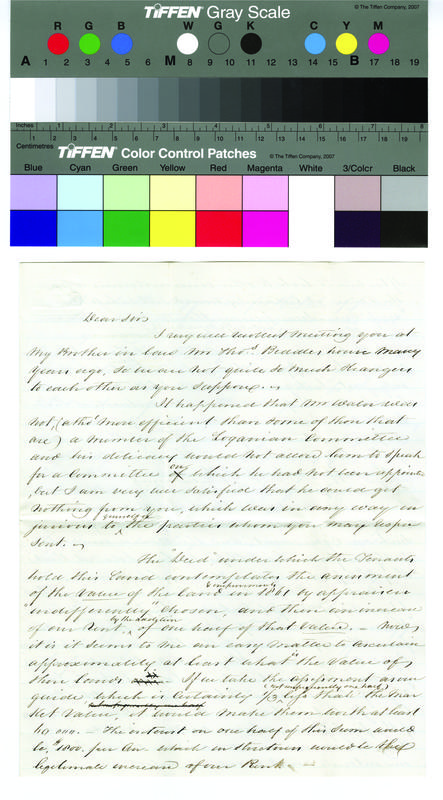 TIFFEN Gray Scale
© The Tiffen Company, 2007
R G B W G K C Y M
A 1 2 3 4 5 6 M 8 9 10 11 12 13 14 15 B 17 18 19
Inches 1 2 3 4 5 6 7 8
Centimetres 1 2 3 4 5 6 7 8 9 10 11 12 13 14 15 16 17 18 19
TIFFEN Color Control Patches
© The Tiffen Company, 2007
Blue Cyan Green Yellow Red Magenta White 3/Color Black
Dear Sir
I very well recollect meeting you at
My Brother in law Mr Thos. house many
Years ago, so we are not quite so much strangers
to each other as you suppose. —
It happened that Mr was
not, (altho' more efficient than some of those that
are) a member of the Loganian Committee
and his delicacy would not allow him to speak
for a Committee on which he had not been appointed
, but I am very well satisfied that he could get
nothing from you, which was in any way in
jurious to the parties whom you may repre
sent. —
The "Deed" under which the Tenants
hold this Land contemplates the assessment
of the value of the Land & improvements in 1861 by appraisers
"indifferently" chosen, and then an increase
of our Rent, of one half of that value. — Now,
it is it seems to me an easy matter to ascertain
approximately at least what "the value of
these Lands is If we take the assessment as our
guide which is certainly 1/3 less than the mar
ket value, it would make them worth at least
60.000. — The interest on one half of this sum would
be, $1800. per An. which in would be the
legitimate increase of our Rent. —